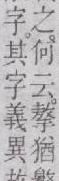 之。何云。摮猶
字。其字義異故